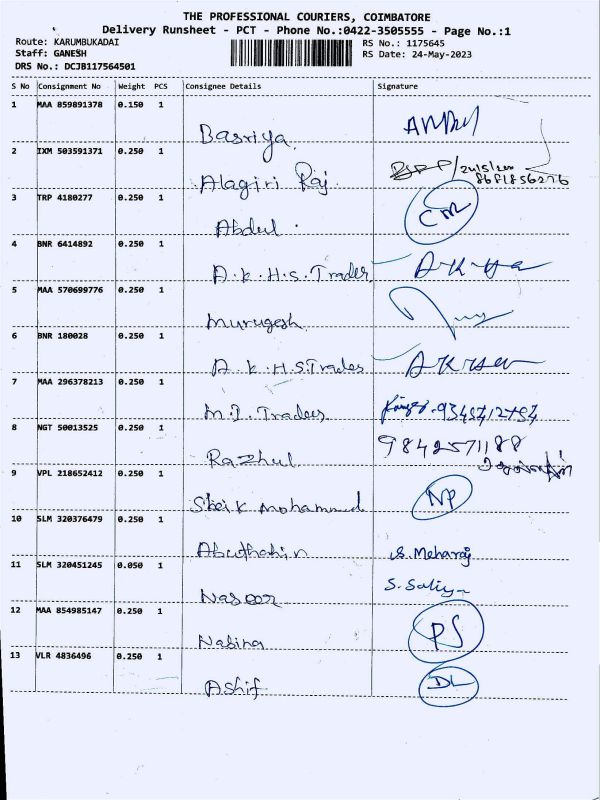 THE PROFESSIONAL COURIERS, COIMBATORE
Delivery Runsheet - PCT - Phone No.:0422-3505555 - Page No.:1
Route: KARUMBUKADAI
RS No.: 1175645
Staff: GANESH
RS Date: 24-May-2023
DRS No.: DCJB117564501
S No Consignment No Weight PCS Consignee Details Signature
1 MAA 859891378 0.150 1
Basriya
2 IXM 503591371 0.250 1
Alagiri Raj
3 TRP 4180277 0.250 1
Abdul CM
4 BNR 6414892 0.250 1
A.K.H.S. Trades
5 MAA 570699776 0.250 1
Murugesh
6 BNR 180028 0.250 1
A.K.H.S. Trades
7 MAA 296378213 0.250 1
M.I. Traders
8 NGT 50013525 0.250 1 9842571188
Razhul
9 VPL 218652412 0.250 1 NP
Sheik Mohammed
10 SLM 320376479 0.250 1
Abuthahin S. Meharaj
11 SLM 320451245 0.050 1 S. Saliya
Naseer
12 MAA 854985147 0.250 1 PS
Nasina
13 VLR 4836496 0.250 1 DL
Ashif